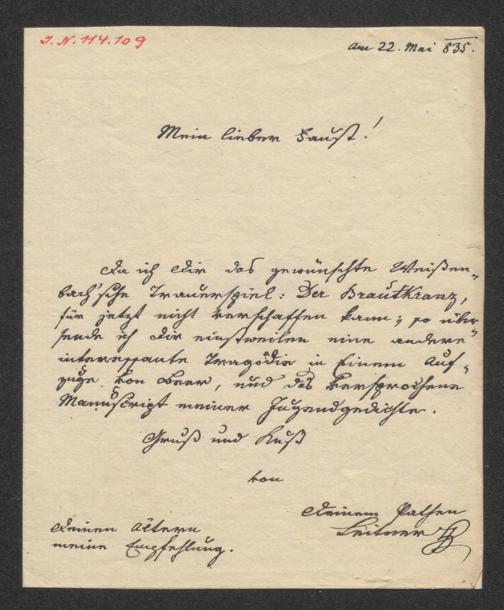 I. N. 114.109
am 22. Mai 835.
Mein lieber Faust!
Da ich Dir das gewünschte Weißen-
bach'sche Trauerspiel: Der Brautkranz,
für jetzt nicht verschaffen kann; so über-
sende ich Dir einstweilen eine andere
interessante Tragödie in Einem Auf-
zuge von Beer, und das versprochene
Manuscript meiner Jugendgedichte.
Gruß und Kuß
von
Deinem Pathen
Leitner
Deinen Ältern
meine Empfehlung.